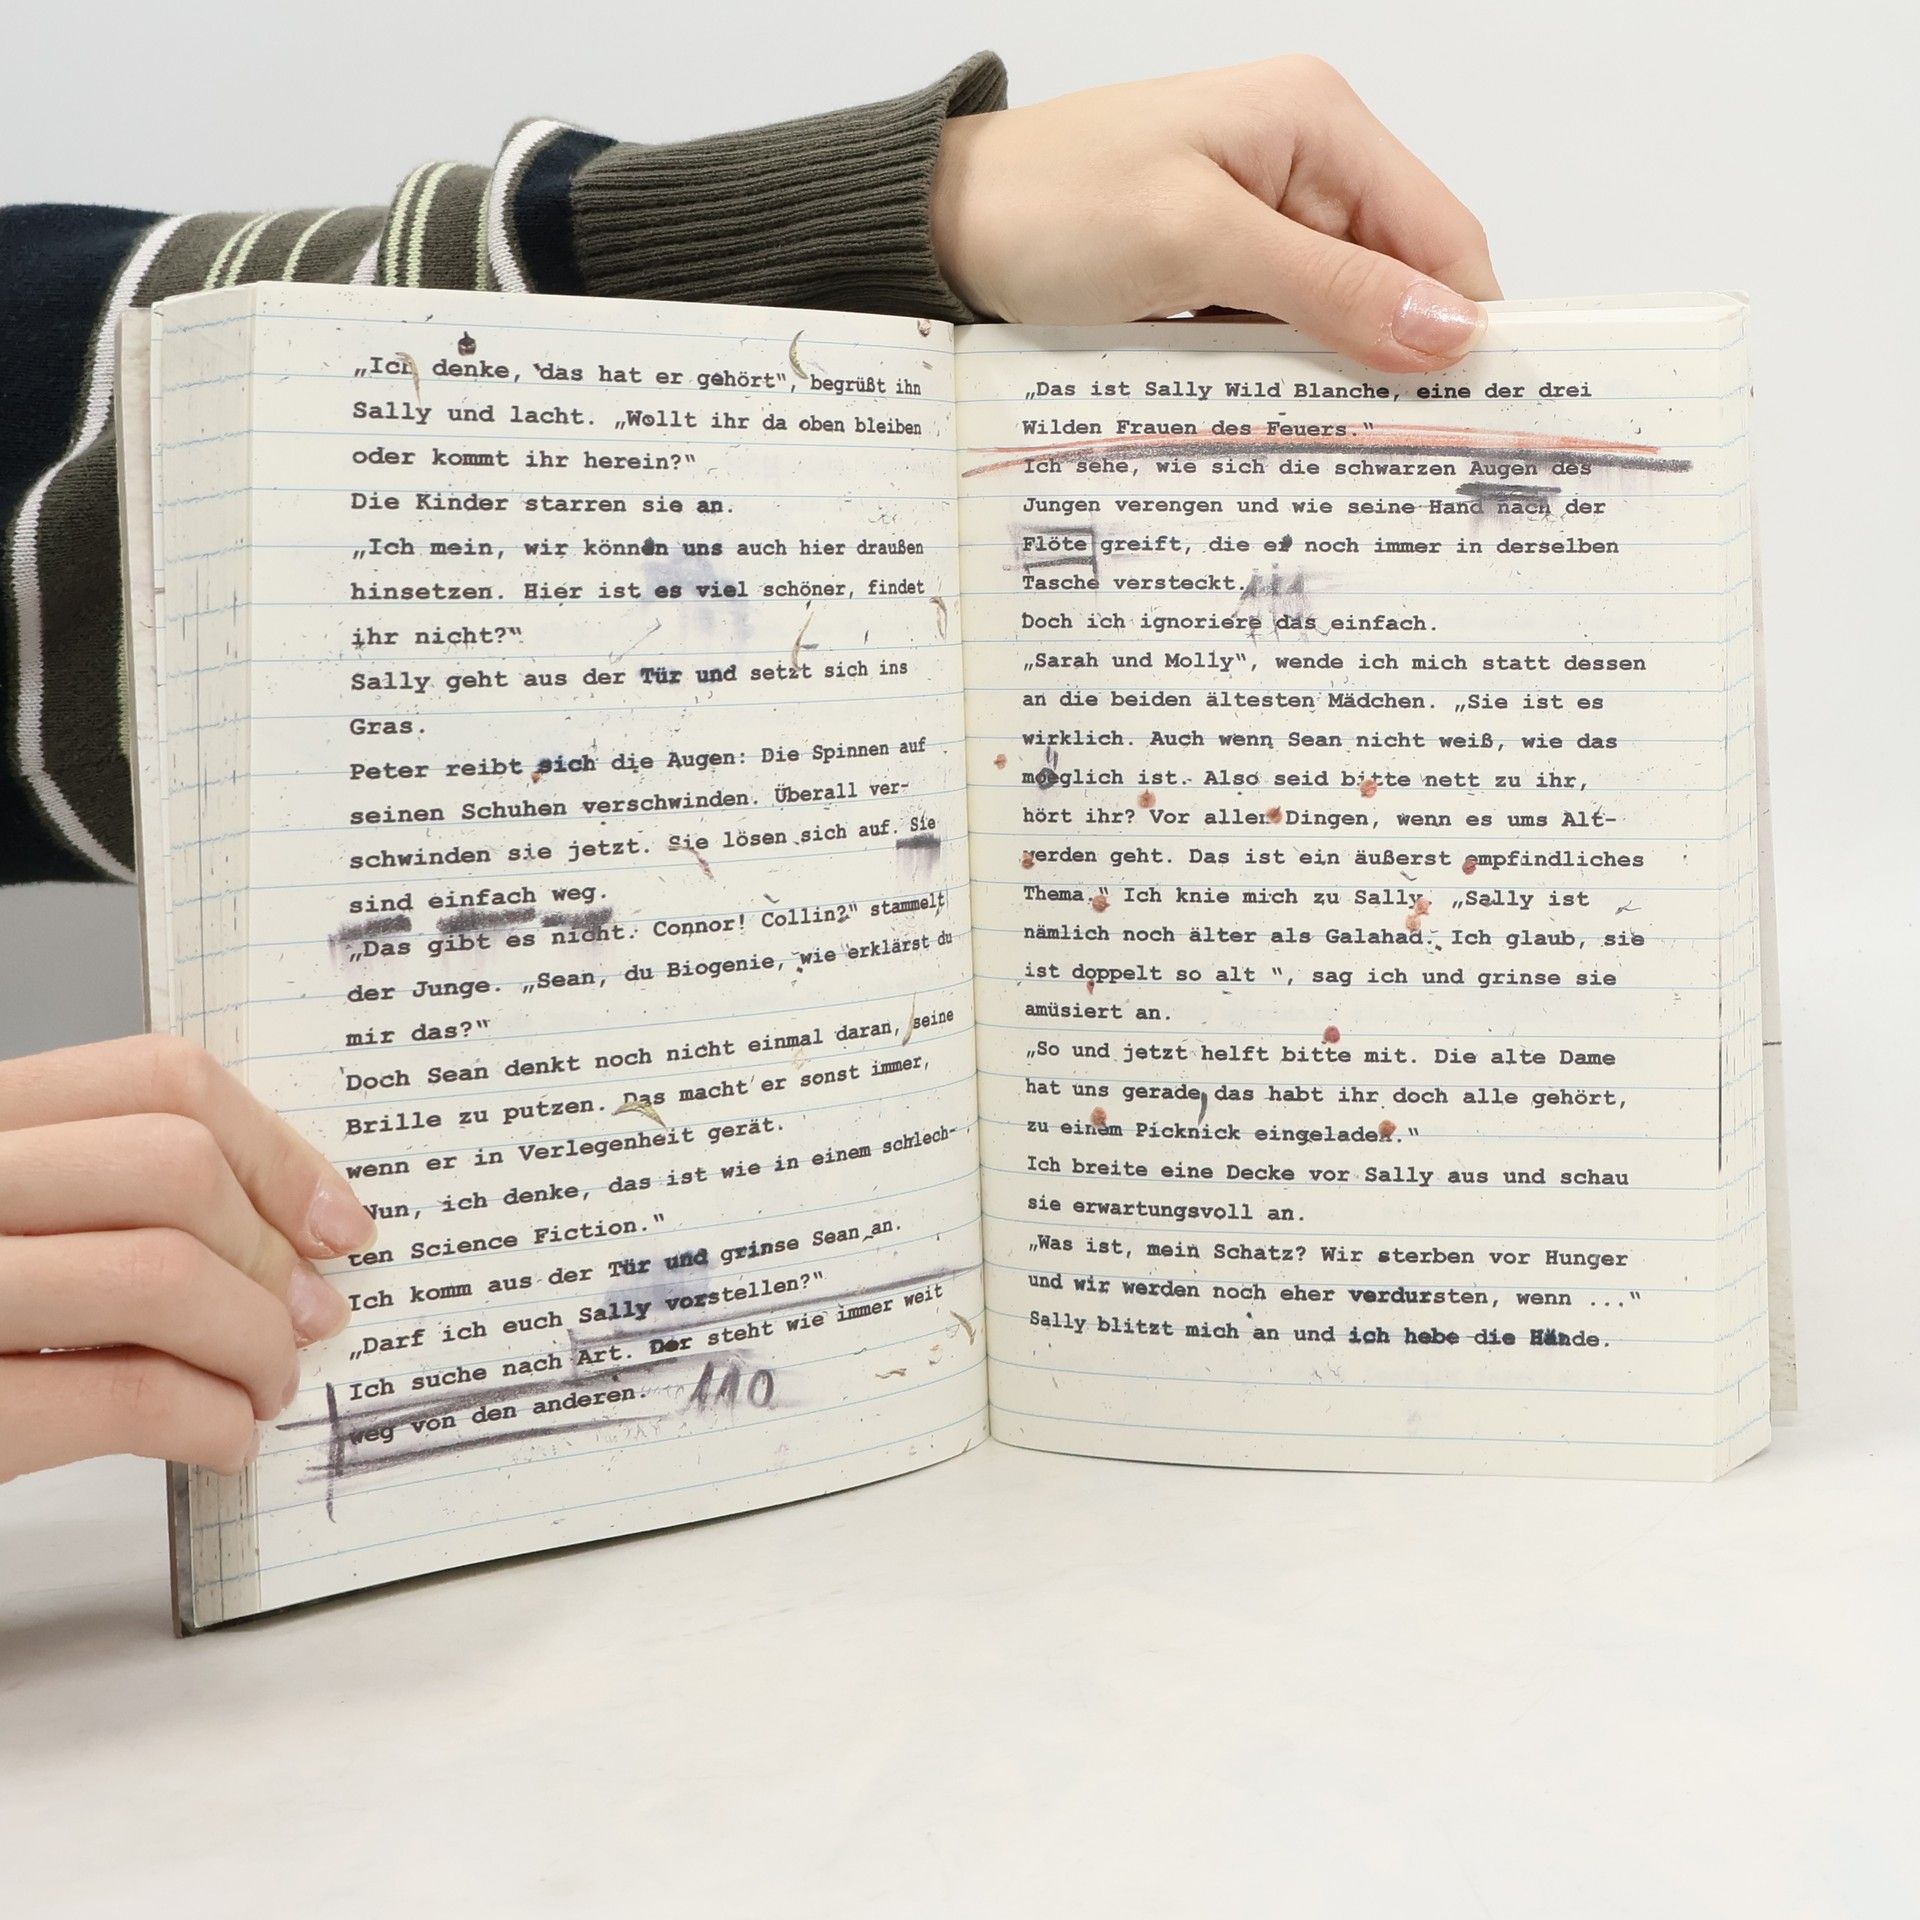 „Ich denke, das hat er gehört", begrüßt ihn
Sally und lacht. „Wollt ihr da oben bleiben
oder kommt ihr herein?"
Die Kinder starren sie an.
„Ich mein, wir können uns auch hier draußen
hinsetzen. Hier ist es viel schöner, findet
ihr nicht?"
Sally geht aus der Tür und setzt sich ins
Gras.
Peter reibt sich die Augen: Die Spinnen auf
seinen Schuhen verschwinden. Überall ver-
schwinden sie jetzt. Sie lösen sich auf. Sie
sind einfach weg.
„Das gibt es nicht. Connor! Collin?" stammelt
der Junge. „Sean, du Biogenie, wie erklärst du
mir das?"
Doch Sean denkt noch nicht einmal daran, seine
Brille zu putzen. Das macht er sonst immer,
wenn er in Verlegenheit gerät.
Nun, ich denke, das ist wie in einem schlech-
ten Science Fiction."
Ich komm aus der Tür und grinse Sean an.
„Darf ich euch Sally vorstellen?"
Ich suche nach Art. Der steht wie immer weit
weg von den anderen.
110
„Das ist Sally Wild Blanche, eine der drei
Wilden Frauen des Feuers."
Ich sehe, wie sich die schwarzen Augen des
Jungen verengen und wie seine Hand nach der
Flöte greift, die er noch immer in derselben
Tasche versteckt.
111
Doch ich ignoriere das einfach.
„Sarah und Molly", wende ich mich statt dessen
an die beiden ältesten Mädchen. „Sie ist es
wirklich. Auch wenn Sean nicht weiß, wie das
moeglich ist. Also seid bitte nett zu ihr,
hört ihr? Vor allen Dingen, wenn es ums Alt-
werden geht. Das ist ein äußerst empfindliches
Thema." Ich knie mich zu Sally. „Sally ist
nämlich noch älter als Galahad. Ich glaub, sie
ist doppelt so alt ", sag ich und grinse sie
amüsiert an.
„So und jetzt helft bitte mit. Die alte Dame
hat uns gerade, das habt ihr doch alle gehört,
zu einem Picknick eingeladen."
Ich breite eine Decke vor Sally aus und schau
sie erwartungsvoll an.
„Was ist, mein Schatz? Wir sterben vor Hunger
und wir werden noch eher verdursten, wenn ..."
Sally blitzt mich an und ich hebe die Hände.